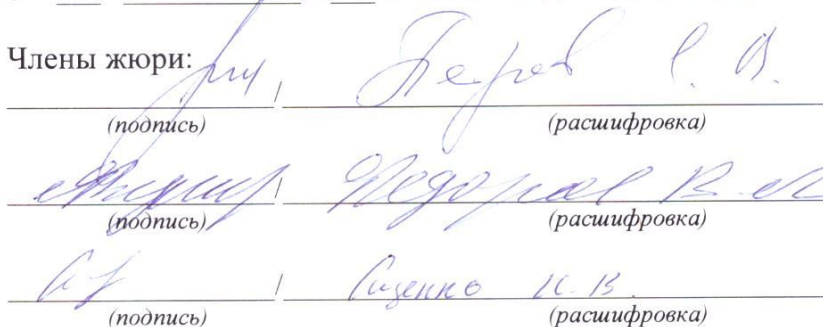 Члены жюри:
/ Перов С. В.
(подпись) (расшифровка)
/ В. М.
(подпись) (расшифровка)
/ Сиценко К. В.
(подпись) (расшифровка)